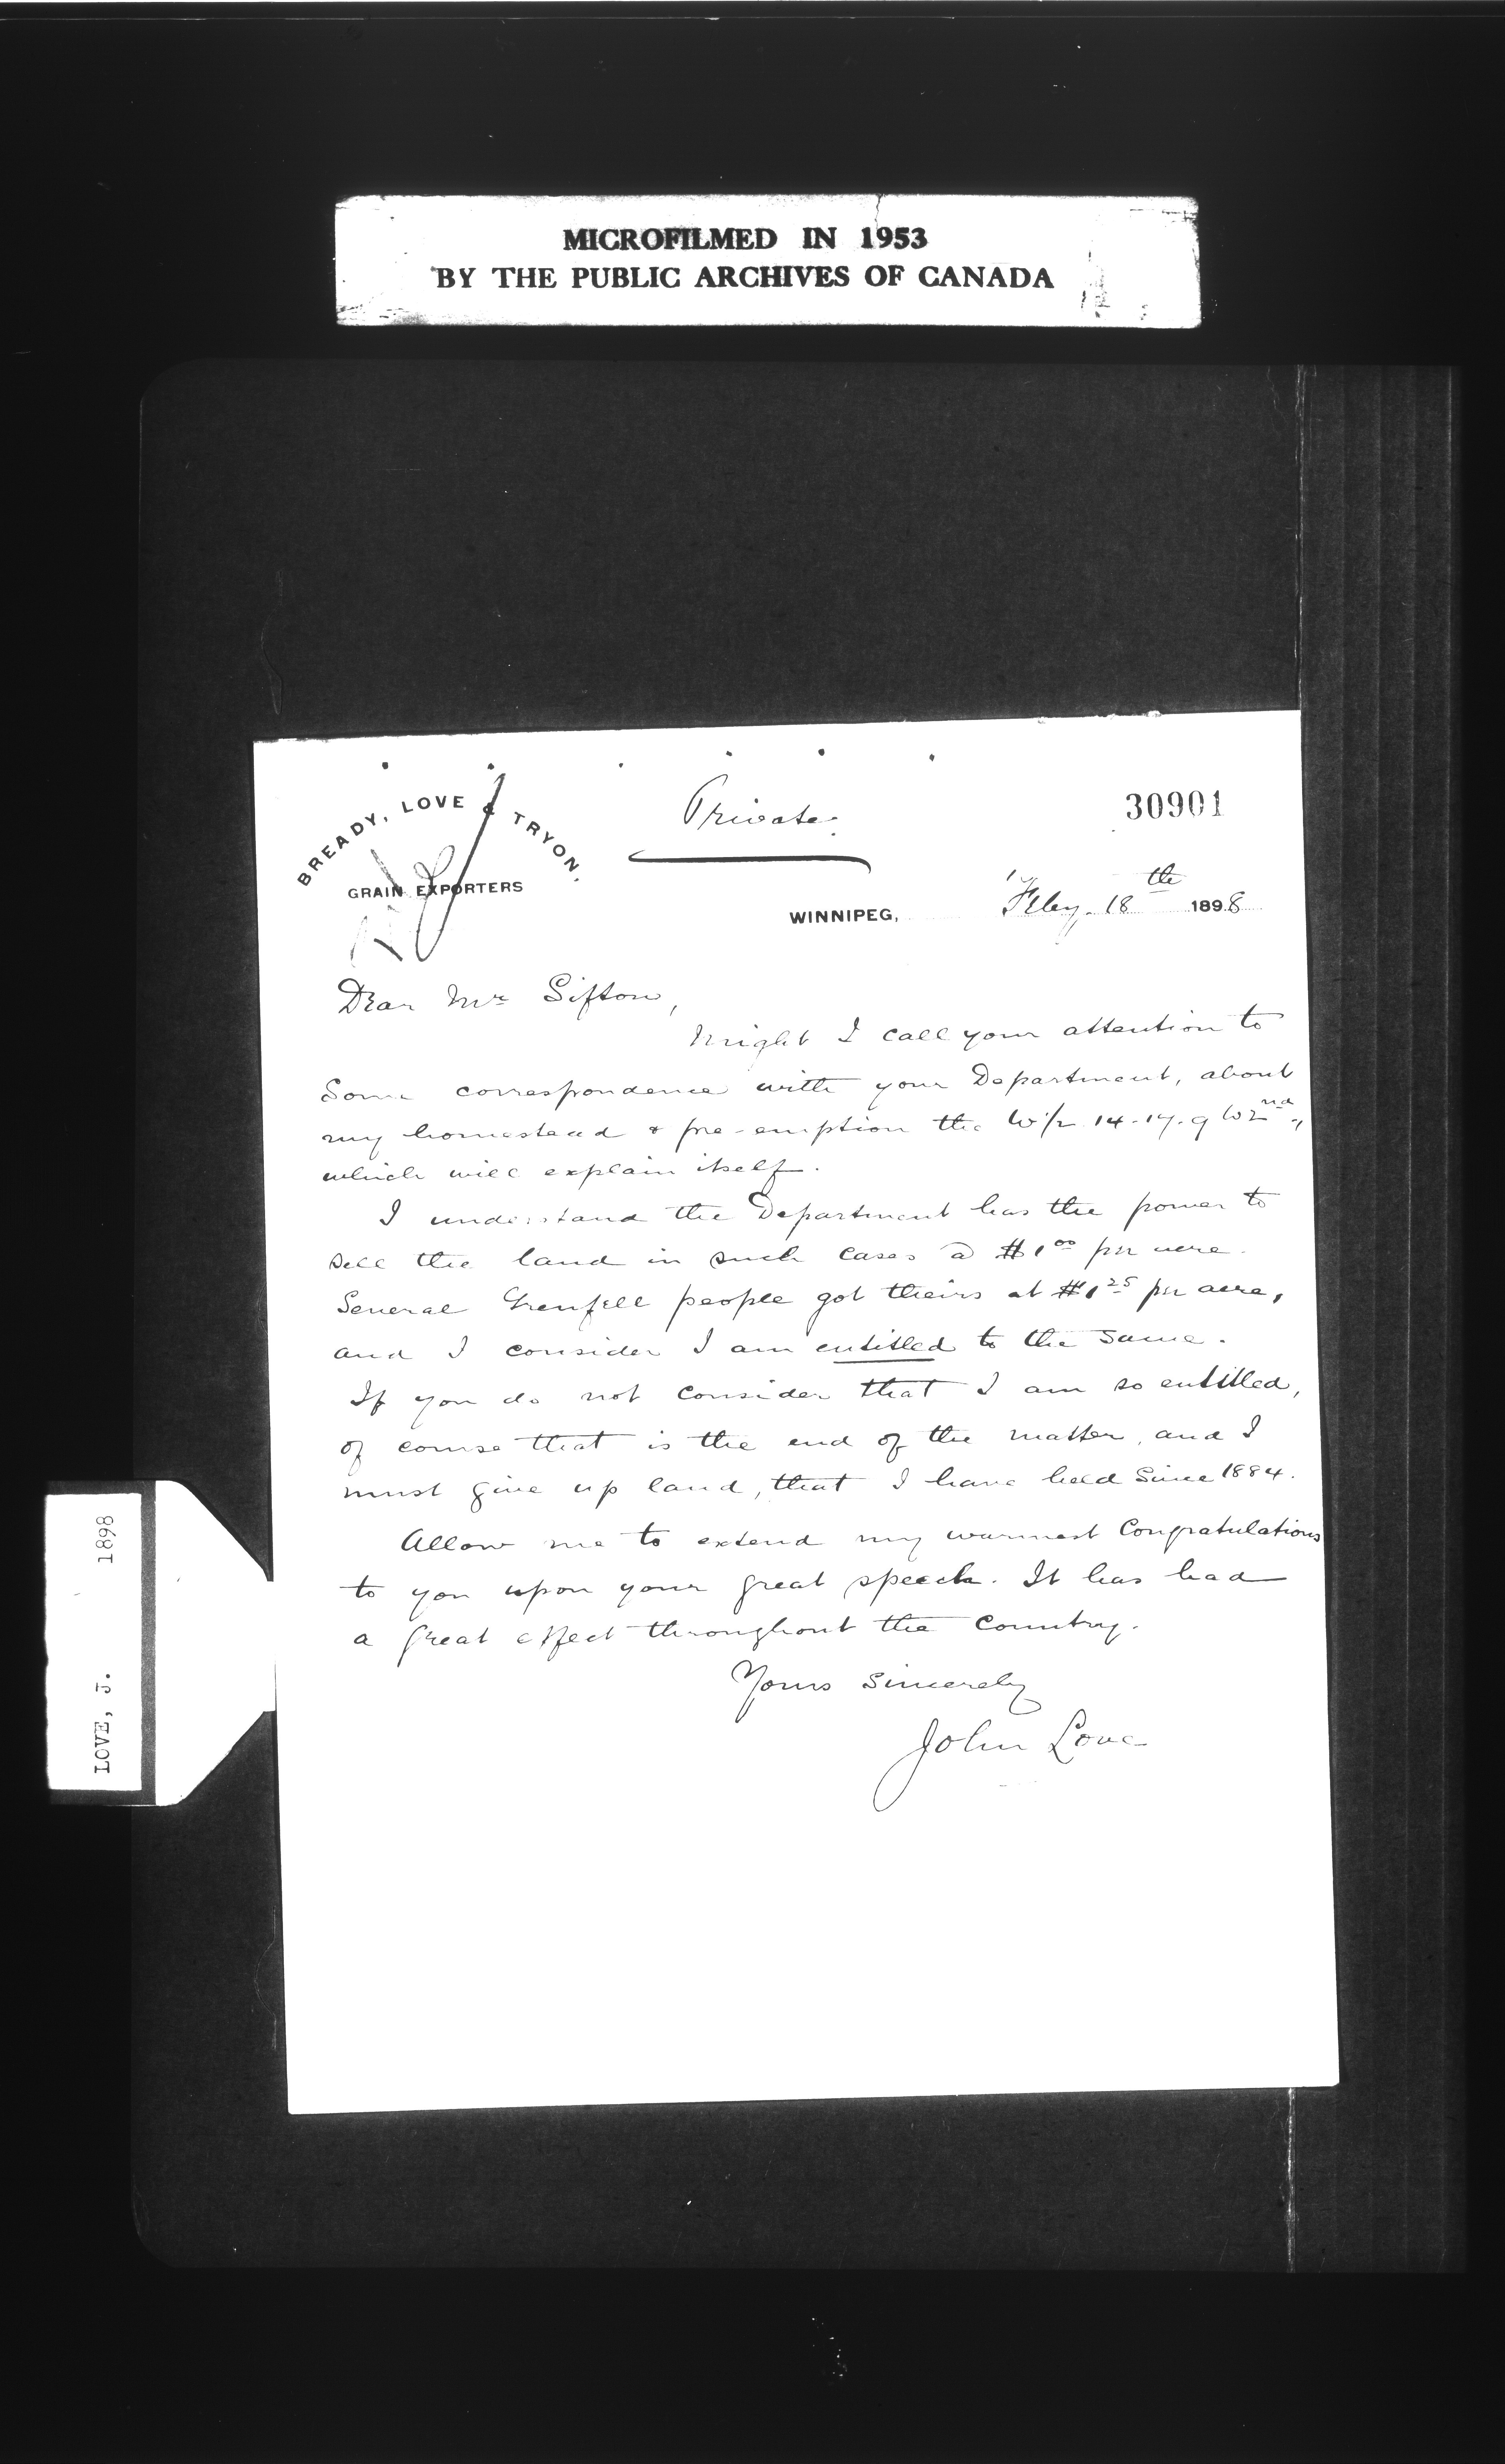 MICROFILMED IN 1953
BY THE PUBLIC ARCHIVES OF CANADA
BREADY, LOVE & TRYON.
GRAIN EXPORTERS
Private.
30901
WINNIPEG, Feby. 18th 1898
Dear Mr Sifton,
Might I call your attention to
some correspondence with your Department, about
my homestead & pre-emption the W/2 14-17-9 W2nd.,
which will explain itself.
I understand the Department has the power to
sell the land in such cases @ $1.00 per acre.
Several Grenfell people got theirs at $1.25 per acre,
and I consider I am entitled to the same.
If you do not consider that I am so entitled,
of course that is the end of the matter, and I
must give up land, that I have held since 1884.
Allow me to extend my warmest Congratulations
to you upon your great speech. It has had
a great effect throughout the Country.
Yours sincerely
John Love
LOVE, J. 1898